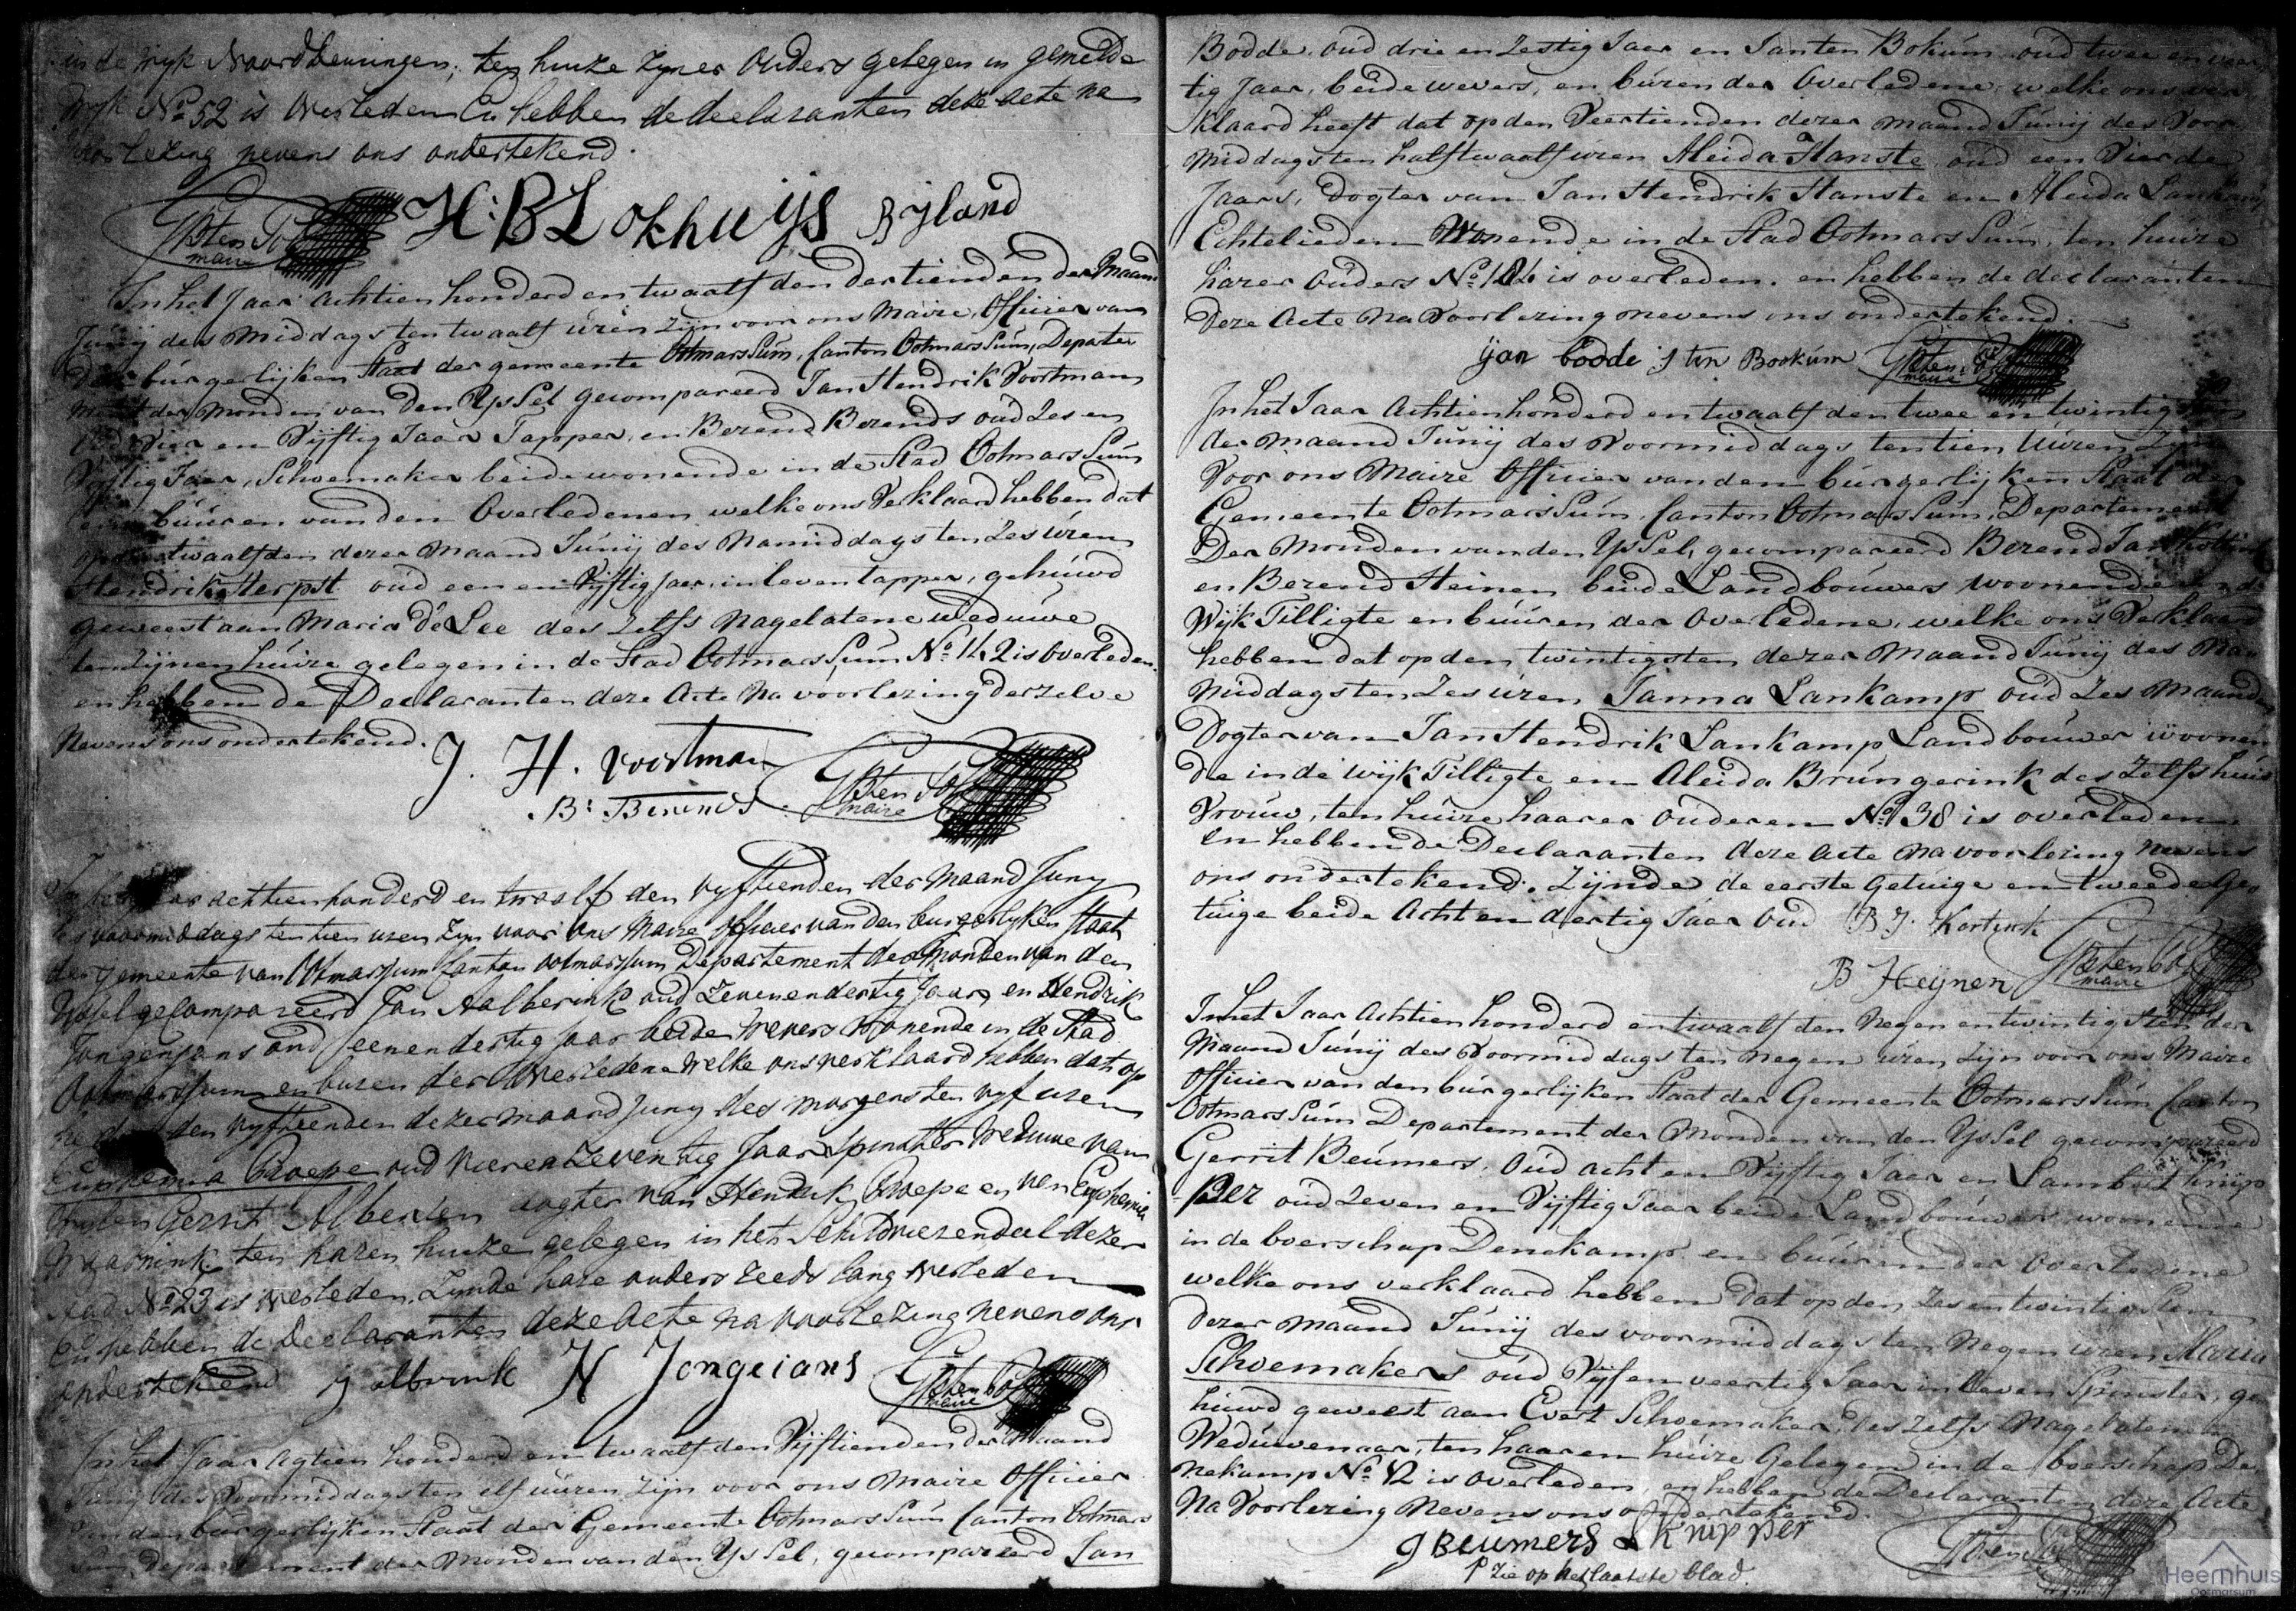 in de wyk Noordbeuningen, ten huize zyner Ouders gelegen in gemelde
wyk No 52 is Overleden En hebben de declaranten deze acte na
voorlezing nevens ons ondertekend.
H: B Lokhuijs Bijland
maire
In het Jaar achtien honderd en twaalf den dertienden der maand
Junij des Middags ten twaalf uren zijn voor ons Maire, Officier van
den burgerlijken Staat der gemeente Ootmarssum, Canton Ootmarssum, Departe
ment der Monden van den Yssel gecompareerd Jan Hendrik Voortman
oud vier en Vijftig Jaar Tapper, en Berend Berends oud zes en
Vijftig Jaar, Schoemaker beide wonende in de Stad Ootmarssum
en buuren van den Overledenen welke ons Verklaard hebben dat
op den twaalfden dezer Maand Junij des Namiddags ten zes uren
Hendrik Herpst oud een en Vijftig Jaar, in leven tapper, gehuwd
geweest aan Maria de Lee des zelfs nagelatene weduwe
ten zijnen huize gelegen in de Stad Ootmarssum No 142 is overleden
en hebben de Declaranten deze Acte Na voorlezing derzelve
Nevens ons ondertekend.
J. H. Voortman
B: Berends
maire
In het Jaar achtien honderd en twaalf den vyftienden der Maand Juny
des voormiddags ten tien uren zyn voor ons Maire officier van den burgerlyken Staat
der gemeente van Ootmarssum Canton Ootmarssum Departement der Monden van den
Yssel gecompareerd Jan Aalberink oud zevenendertig Jaar, en Hendrik
Jongenjans oud eenendertig Jaar beide wevers wonende in de Stad
Ootmarssum en buren der Overledene welke ons verklaard hebben dat op
den vyftienden dezer maand Juny des morgens ten vyf uren
Euphemia Groepe oud vierenzeventig Jaar Spinster Weduwe van
wylen Gerrit Alberink dogter van Hendrik Groepe en van Euphemia
ten haren huize gelegen in het Schildriezendeel dezer
Stad No 23 is Overleden, zynde hare ouders reeds lang overleden
En hebben de declaranten deze Acte na voorlezing nevens ons
ondertekend j albrink H Jongeians
maire
In het Jaar Agtien honderd en twaalf den Vijftienden der Maand
Junij des Voormiddags ten elf uuren zijn voor ons Maire Officier
van den burgerlijken Staat der Gemeente Ootmarssum Canton Ootmars
sum, Departement der Monden van den Yssel, gecompareerd Jan
Bodde, oud drie en zestig Jaar en Jan ten Bokum oud twee en veer
tig Jaar, beide wevers, en buren der Overledene, welke ons ver
klaard heeft dat op den Veertienden dezer maand Junij des Voor
Middags ten half twaalf uren Aleida Hanste oud een Vierde
Jaars, Dogter van Jan Hendrik Hanste en Aleida Lankamp
Echtelieden Wonende in de Stad Ootmarssum, ten huize
harer Ouders No 124 is overleden. en hebben de declaranten
Deze Acte Na Voorlezing nevens ons ondertekend.
ijan bodde j ten Bookum
maire
In het Jaar Achtien honderd en twaalf den twee en twintigsten
der Maand Junij des Voormiddags ten tien Uuren zijn
Voor ons Maire Officier van den burgerlijken Staat der
Gemeente Ootmarssum, Canton Ootmarssum, Departement
Der Monden van den Yssel, gecompareerd Berend Jan Kottink
en Berend Heinen beide Landbouwers woonende in de
Wijk Tilligte en buuren der Overledene, welke ons Verklaard
hebben dat op den twintigsten dezer Maand Junij des Na
Middags ten zes uren Janna Lankamp oud zes Maanden
Dogter van Jan Hendrik Lankamp Landbouwer woonen
de in de wijk Tilligte en Aleida Brungerink des zelfs huis
Vrouw, ten huize haarer Ouderen No 38 is overleden
En hebben de Declaranten deze Acte na voorlezing nevens
ons ondertekend. Zijnde de eerste Getuige en tweede Ge
tuige beide Acht en dertig Jaar Oud B J. Kortink
B Heijnen
maire
In het Jaar Achtien honderd en twaalf den Negen en twintigsten der
Maand Junij des Voormiddags ten Negen uren zijn voor ons Maire
Officier van den burgerlijken Staat der Gemeente Ootmarssum Canton
Ootmarssum Departement der Monden van den Yssel gecompareerd
Gerrit Beumers, Oud acht en Vijftig Jaar en Lambert Knip
per oud zeven en Vijftig Jaar beide Landbouwers woonende
in de boerschap Denekamp en buuren der Overledene
welke ons verklaard hebben Dat op den zes en twintigsten
Dezer Maand Junij des voormiddags ten Negen uren Maria
Schoemakers oud Vijf en veertig Jaar in leven Spinster, ge
huwd geweest aan Evert Schoemaker, des zelfs Nagelaten
Weduwenaar, ten haaren huize Gelegen in de boerschap De
nekamp No 12 is Overleden, en hebben de Declaranten deze Acte
Na Voorlezing Nevens ons ondertekend.
G Beumers L Knipper
Zie op het laatste blad.
Heemhuis
Ootmarsum